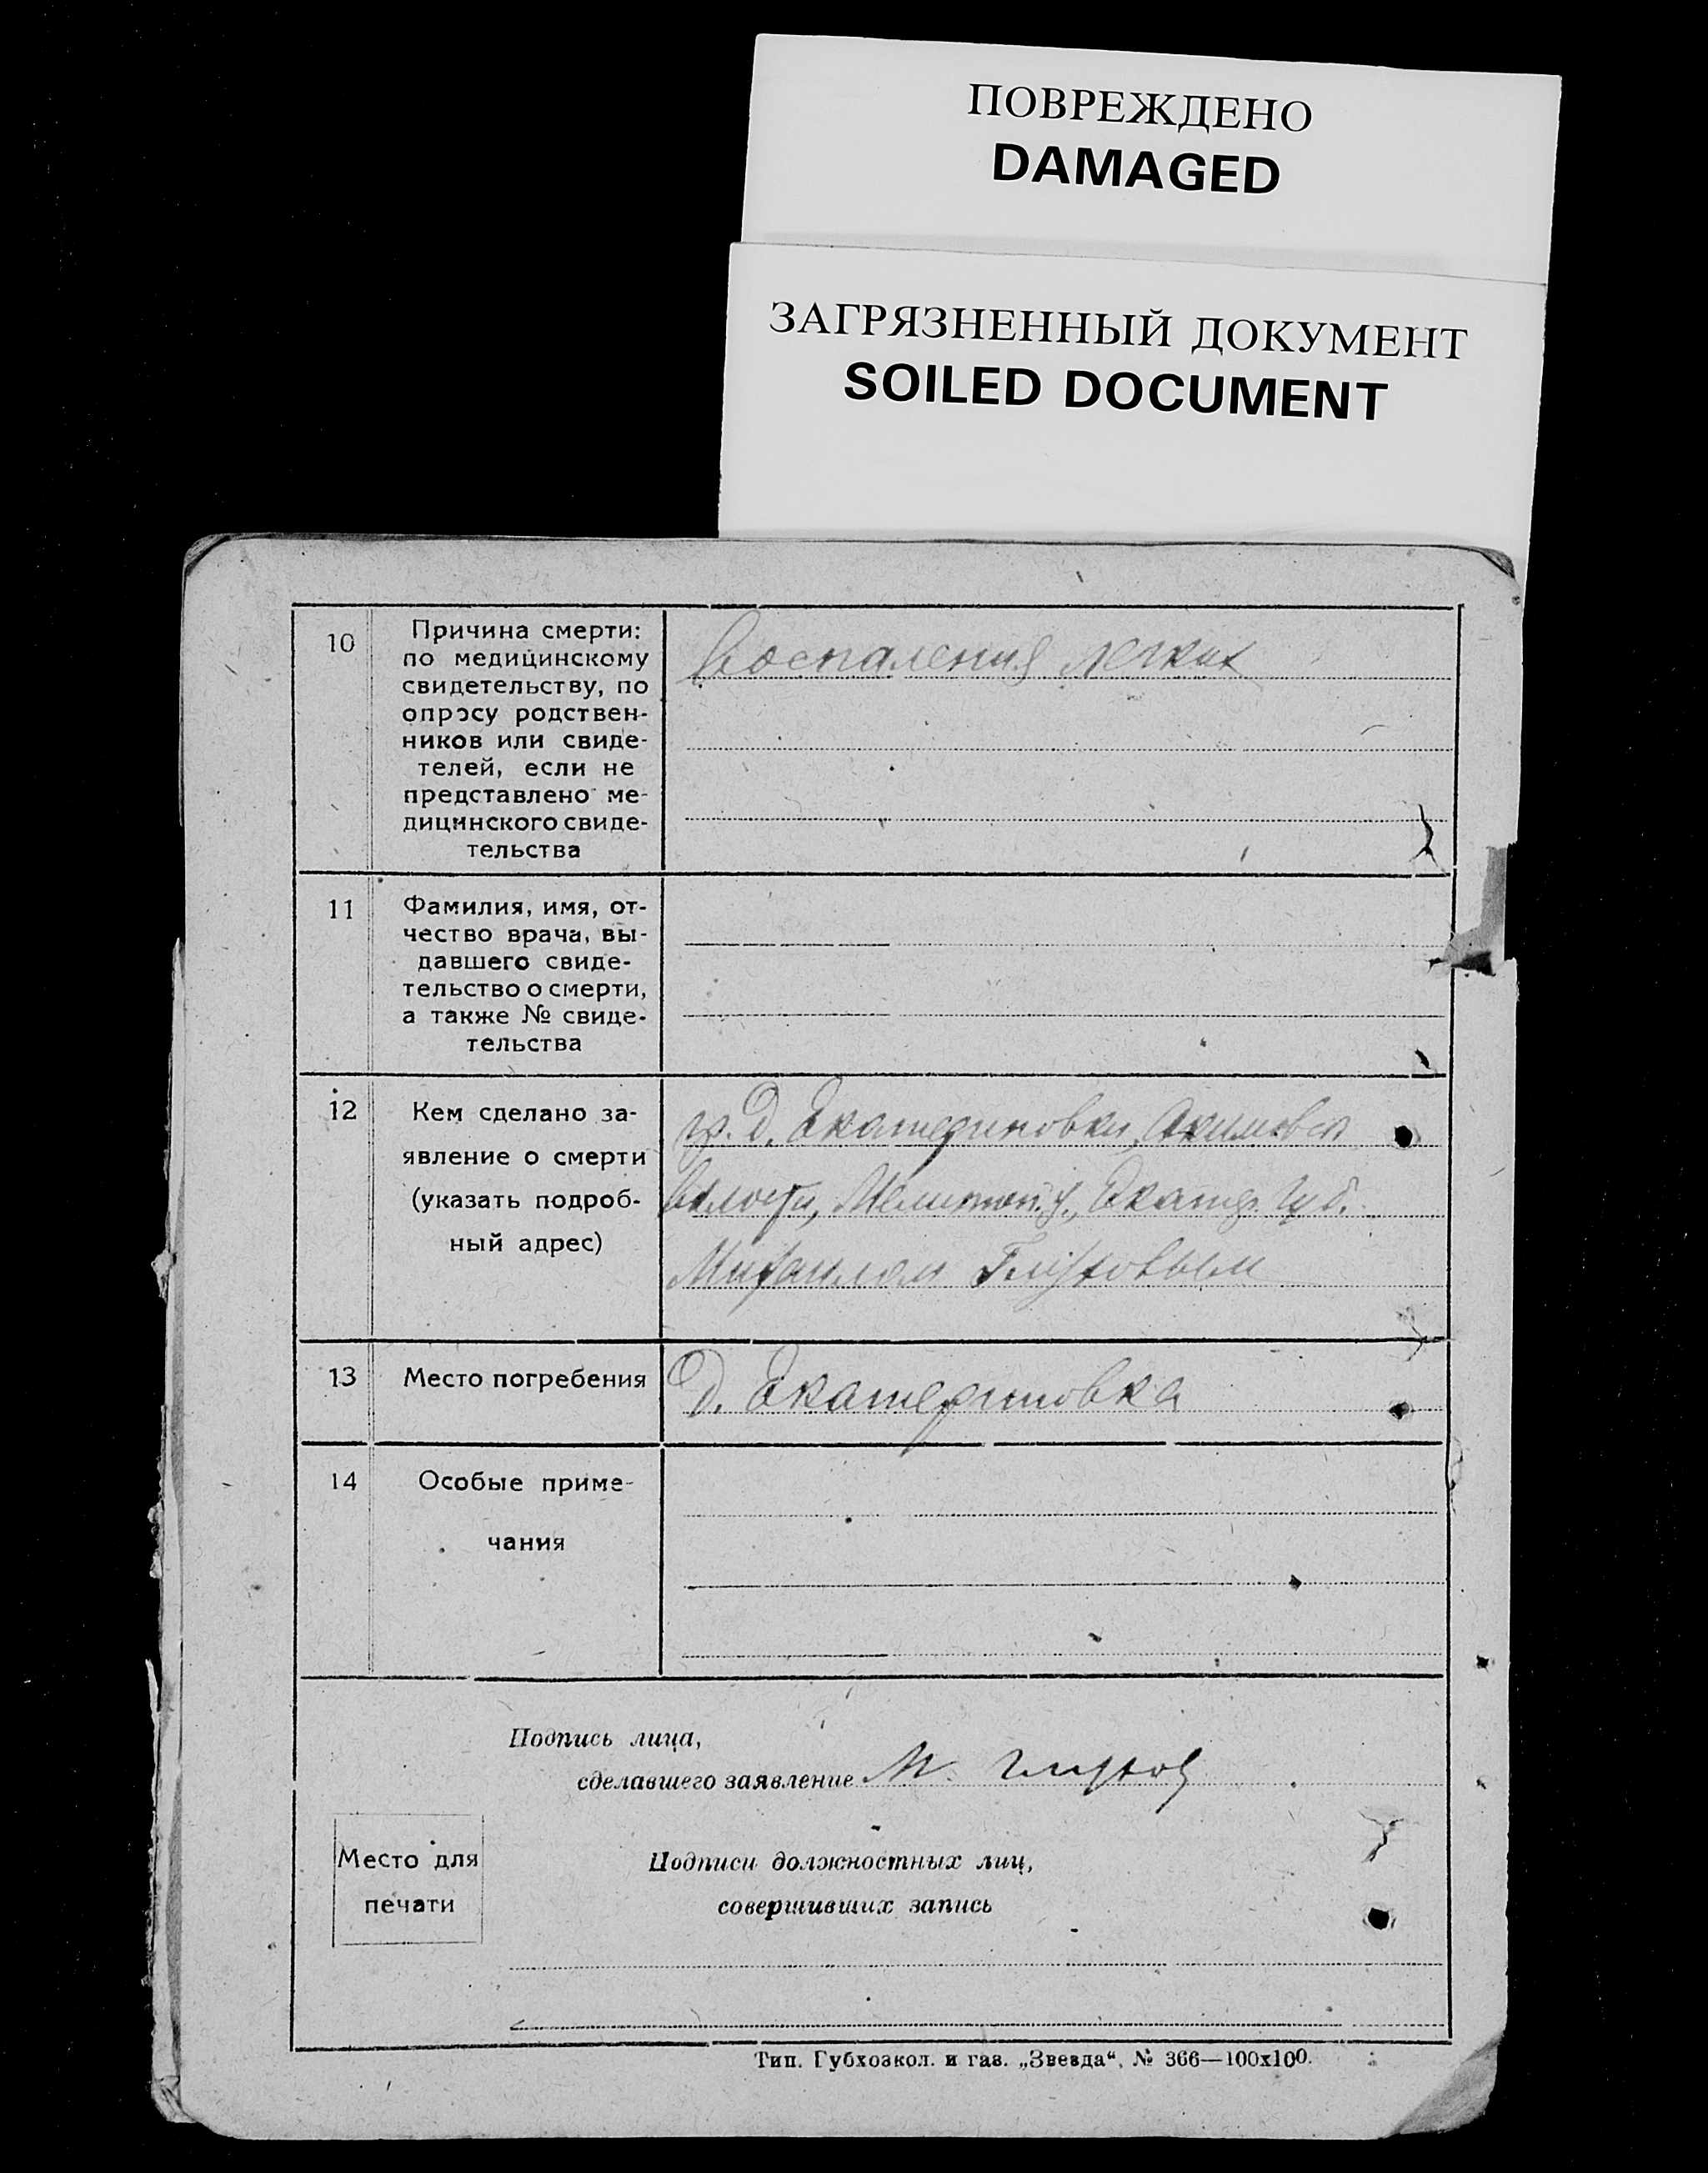 ПОВРЕЖДЕНО
DAMAGED
ЗАГРЯЗНЕННЫЙ ДОКУМЕНТ
SOILED DOCUMENT
10
Причина смерти:
по медицинскому
свидетельству, по
опросу родствен-
ников или свиде-
телей, если не
представлено ме-
дицинского свиде-
тельства
Воспаления легких
11
Фамилия, имя, от-
чество врача, вы-
давшего свиде-
тельство о смерти,
а также № свиде-
тельства
12
Кем сделано за-
явление о смерти
(указать подроб-
ный адрес)
гр. д. Екатериновки, Акимовск
волости, Мелитоп. у., Екатер. Губ.
Михаилом Глуховым
13
Место погребения
д. Екатериновка
14
Особые приме-
чания
Подпись лица,
сделавшего заявление М. Глухов
Место для
печати
Подписи должностных лиц,
совершивших запись
Тип. Губхозкол. и газ. „Звезда“, № 366—100х100.